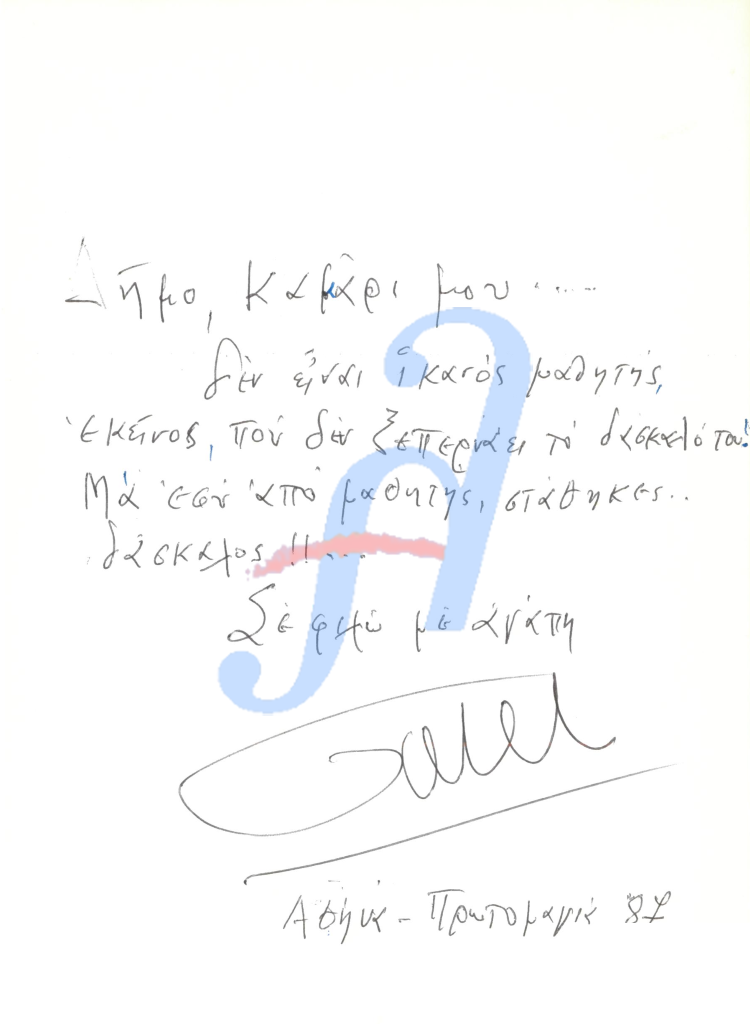 Δῆμο, Καμᾶρι μου ......
δὲν εἶναι ἱκανὸς μαθητής,
ἐκεῖνος, ποὺ δὲν ξεπερνάει τὸ δάσκαλό του!
Μὰ ἐσὺ ἀπὸ μαθητής, στάθηκες..
δάσκαλος !!...
Σὲ φιλῶ μὲ ἀγάπη
Ἀθήνα - Πρωτομαγιὰ